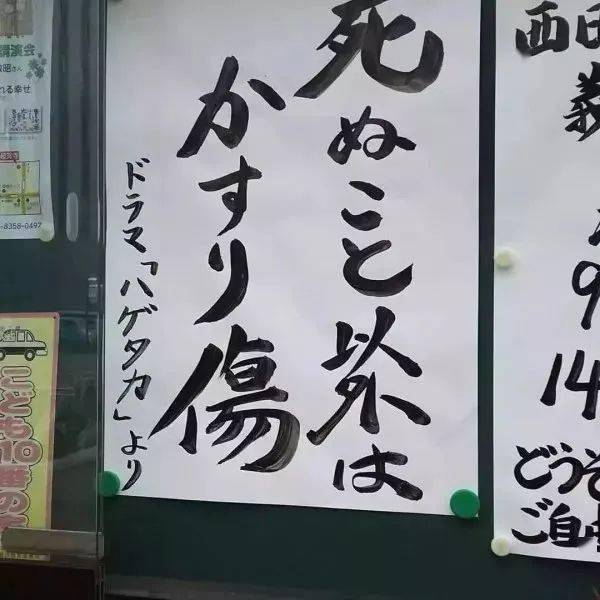 死ぬこと以外は
かすり傷
ドラマ「ハゲタカ」より
西
9
14
どうぞ
ご自由
講演会
れる幸せ
8358-0497
こども110番の